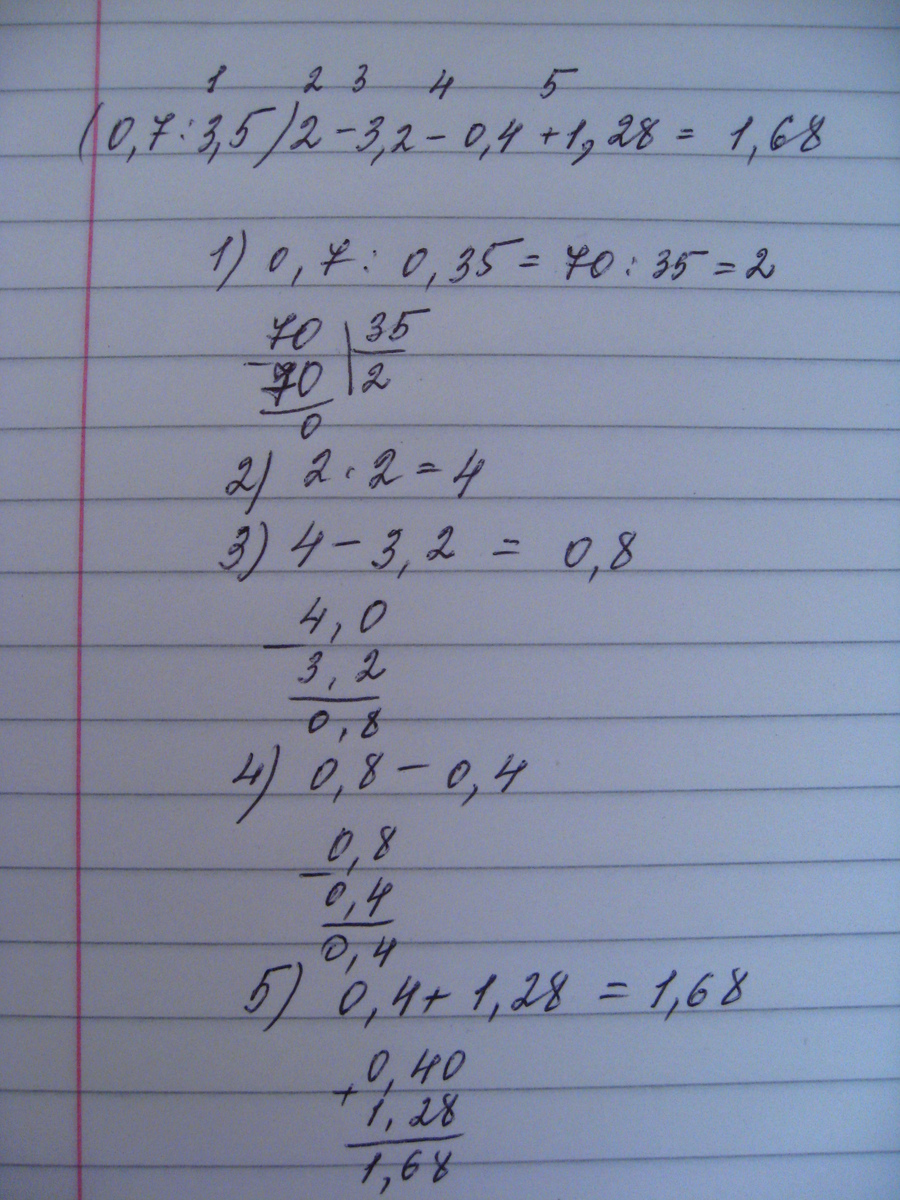 1 2 3 4 5
(0,7:3,5)2-3,2-0,4+1,28= 1,68
1) 0,7: 0,35=70:35=2
70 35
- 70 2
0
2) 2·2=4
3) 4-3,2 = 0,8
4,0
- 3,2
0,8
4) 0,8-0,4
0,8
- 0,4
0,4
5) 0,4+1,28 =1,68
0,40
+ 1,28
1,68